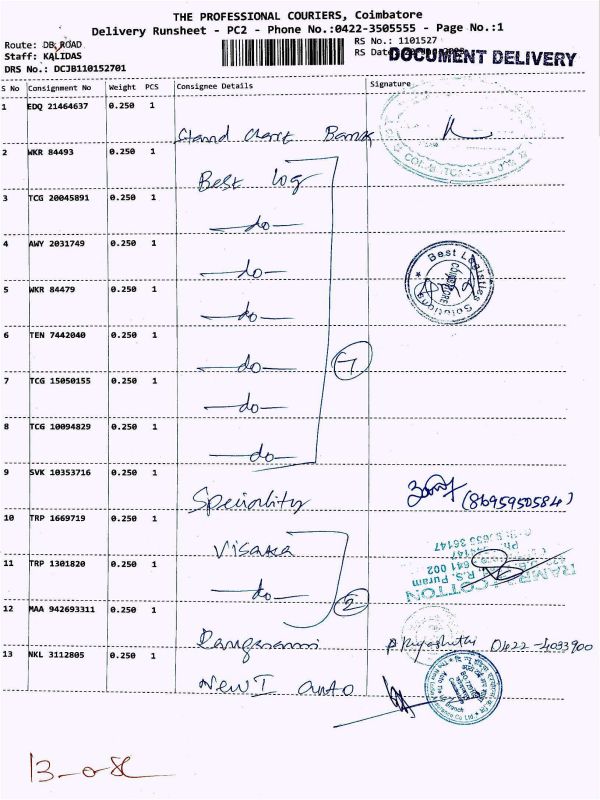 THE PROFESSIONAL COURIERS, Coimbatore
Delivery Runsheet - PC2 - Phone No.:0422-3505555 - Page No.:1
Route: DB ROAD
RS No.: 1101527
Staff: KALIDAS
RS Date:
DOCUMENT DELIVERY
DRS No.: DCJB110152701
S No Consignment No Weight PCS Consignee Details Signature
1 EDQ 21464637 0.250 1
Stand Chart Bank
2 WKR 84493 0.250 1
Best Log
3 TCG 20045891 0.250 1
-do-
4 AWY 2031749 0.250 1
-do-
Best Logistics Solutions
5 WKR 84479 0.250 1
-do-
6 TEN 7442040 0.250 1
-do-
7
7 TCG 15050155 0.250 1
-do-
8 TCG 10094829 0.250 1
-do-
9 SVK 10353716 0.250 1
Speciality
(8695950584)
10 TRP 1669719 0.250 1
Visaka
11 TRP 1301820 0.250 1
-do-
2
R.S. Puram
641 002
12 MAA 942693311 0.250 1
Rangasami
0422-4093900
13 NKL 3112805 0.250 1
New I auto
13-0-8